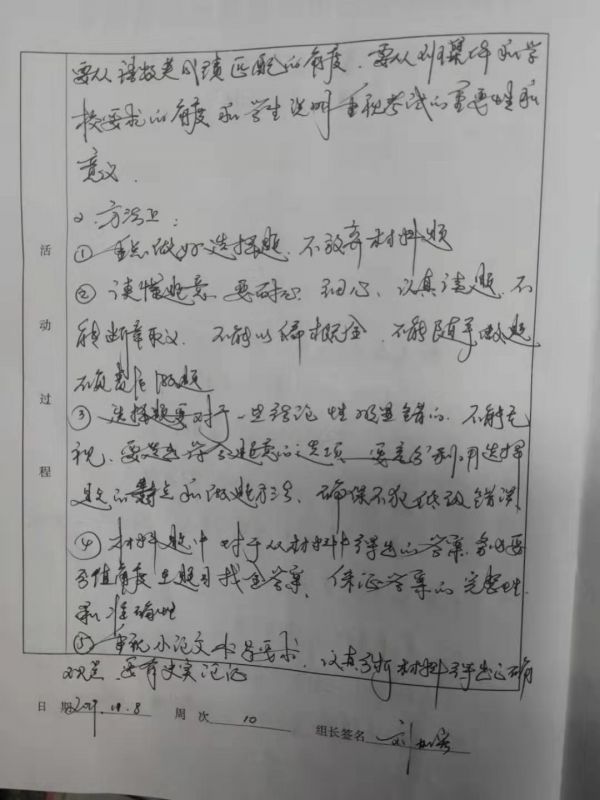 要从语数类成绩匹配的角度，要从班集体和学
校要求的角度和学生说明重视考试的重要性和
意义．
2．方法上：
① 重点做好选择题，不放弃材料题
② 读懂题意，要耐心、细心、认真读题，不
能断章取义，不能以偏概全，不能随手做题
不负责任做题
③ 选择题要对于一些理论性明显错的，不能无
视，要选出符合题意的选项，要充分利用选择
题的特点和做题方法，确保不犯低级错误
④ 材料题中对于从材料中得出的答案，务必要
多角度 找全答案，保证答案的完整性
和准确性
⑤ 重视小论文 要求，认真分析材料得出正确
观点，要有史实论证
活动过程
日期 2019.11.8 周次 10 组长签名 刘